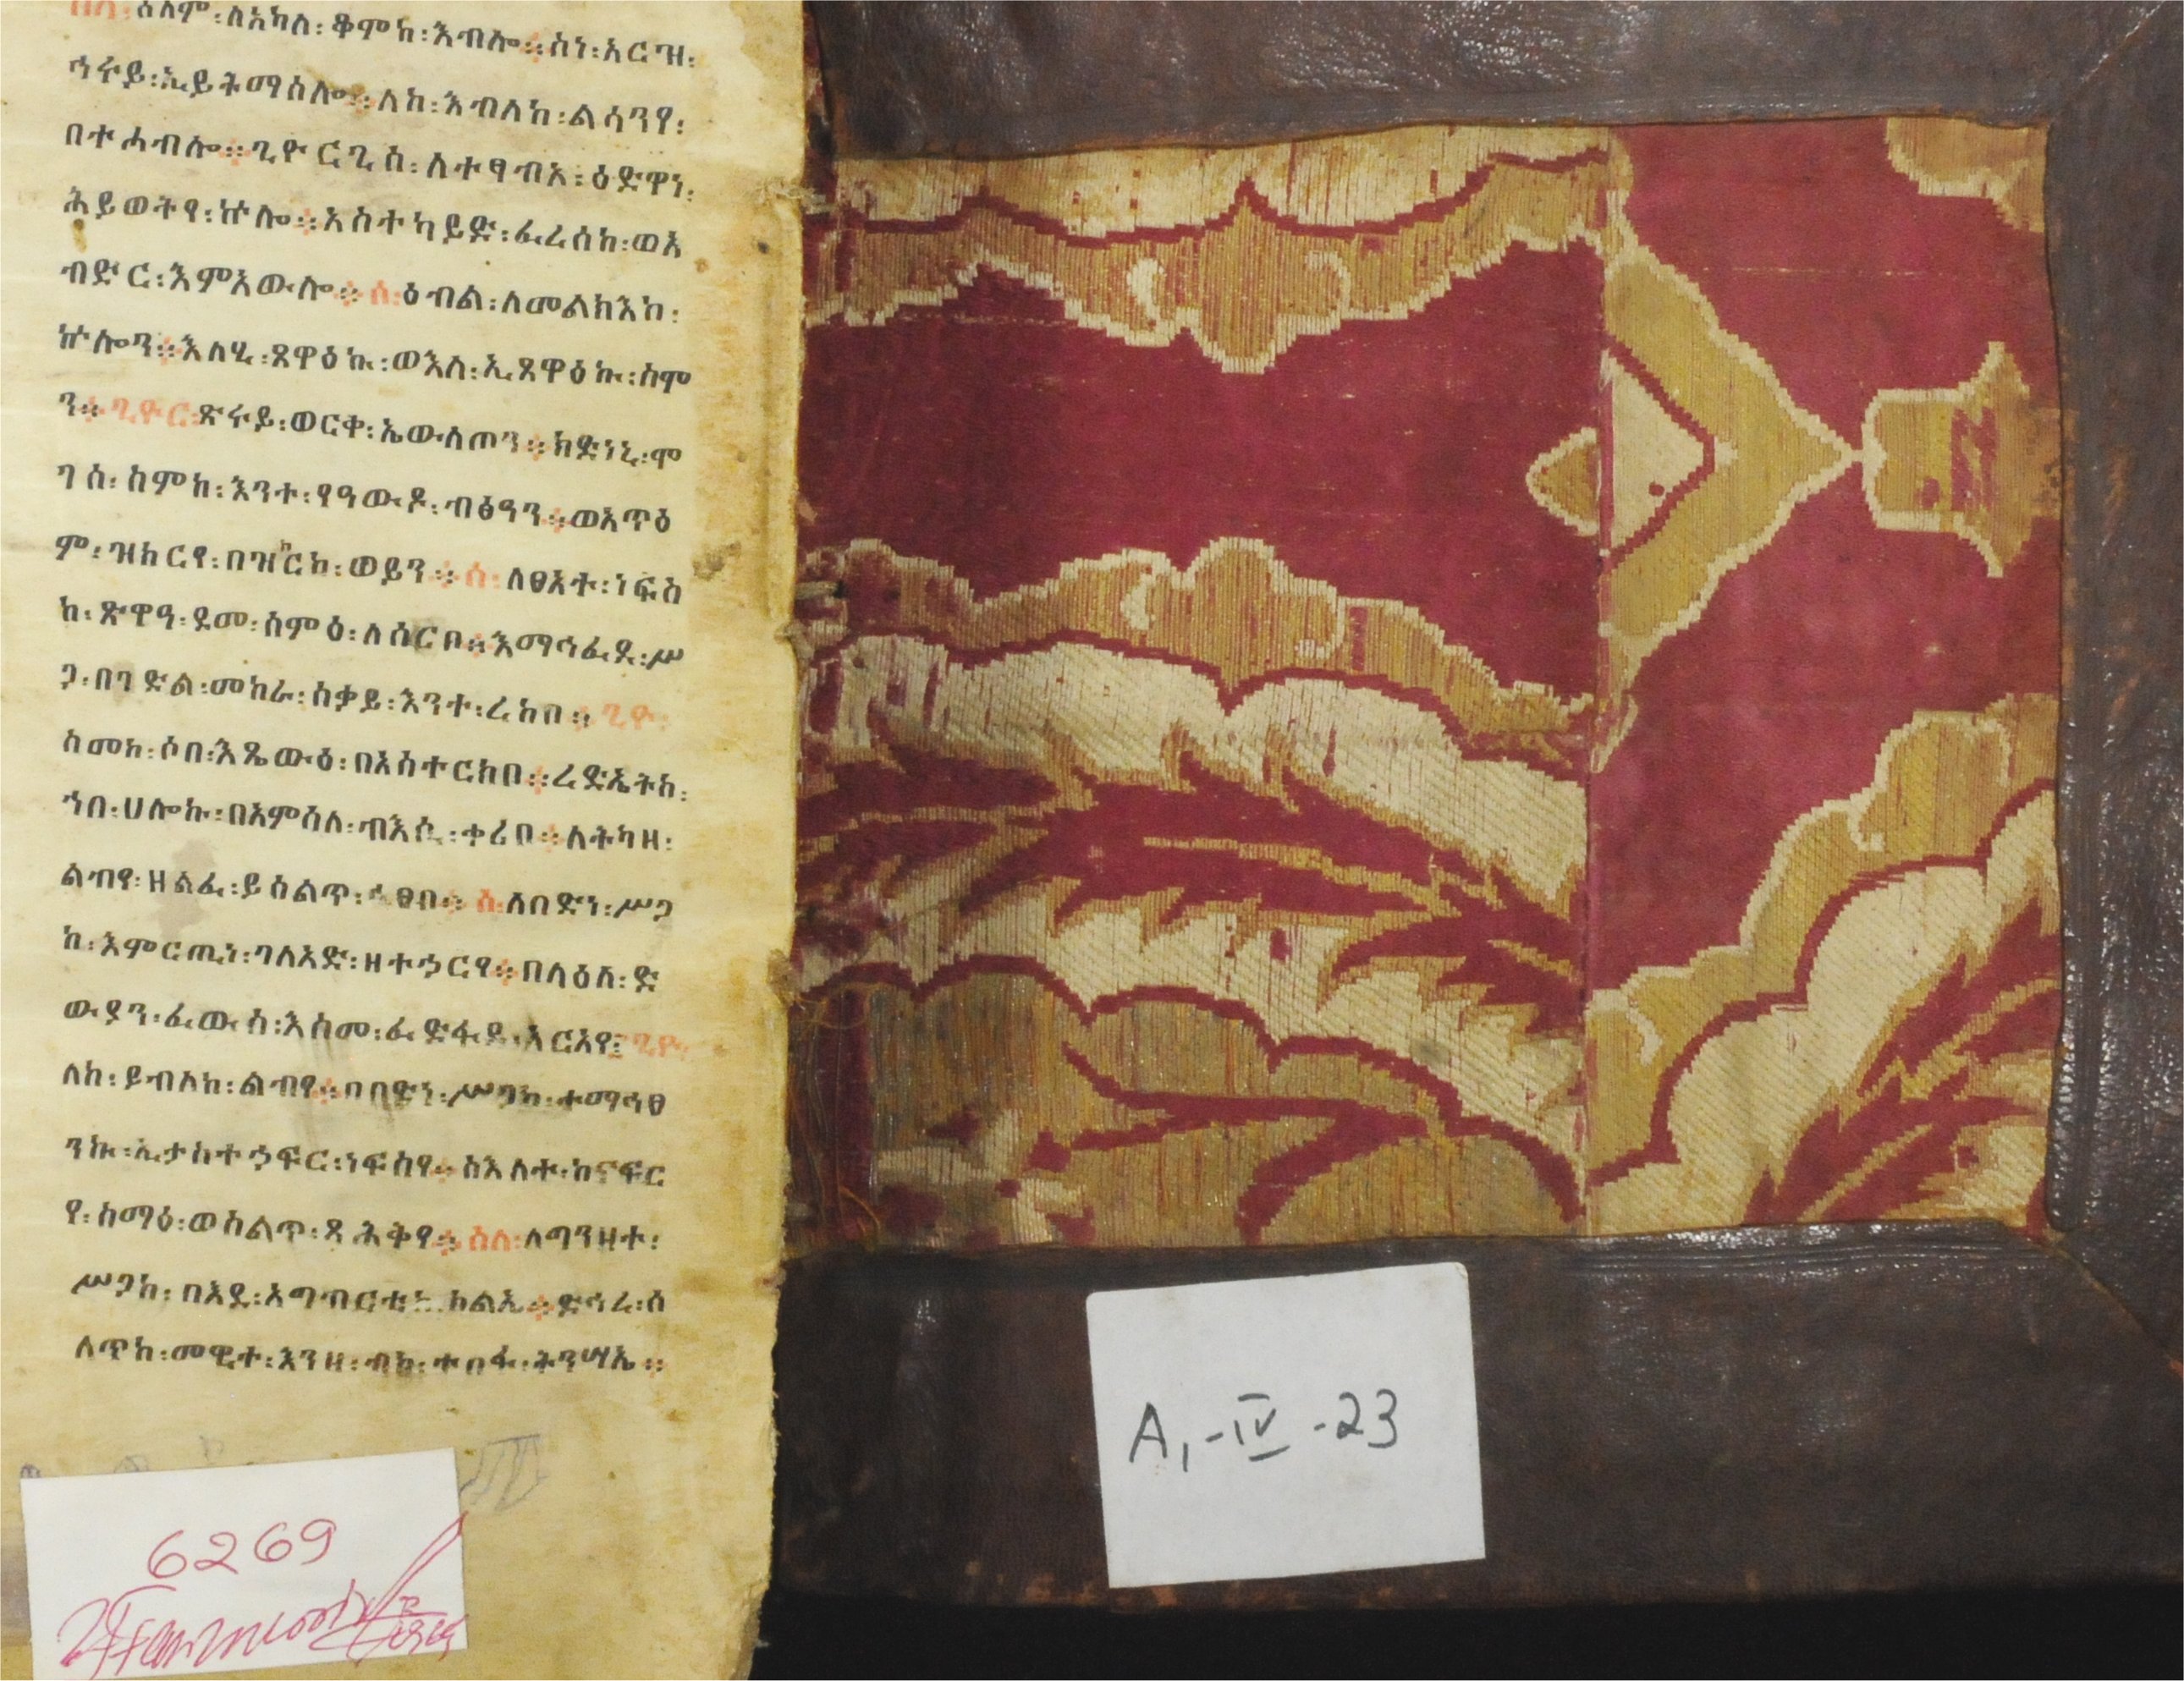 ሰላም፡ለአካለ፡ቆምከ፡እብሎ።ስነ፡አርዝ፡
ኅሩይ፡ኢይትማሰሎ።ለከ፡እብለከ፡ልሳንየ፡
በተሐብሎ።ጊዮርጊስ፡ለተፃብአ፡ዕድዋነ፡
ሕይወትየ፡ኵሎ።አስተካይድ፡ፈረሰከ፡ወአ
ብድር፡እምአውሎ።ሰ፡ዕብል፡ለመልክእከ፡
ኵሎን።እለሂ፡ጸዋዕኩ፡ወእለ፡ኢጸዋዕኩ፡ስሞ
ን።ጊዮር፡ጽሩይ፡ወርቀ፡ኤውላጦን።ክድነኒ፡ሞ
ገሰ፡ስምከ፡እንተ፡የዓውዶ፡ብፅዓን።ወአጥዕ
ም፡ዝክርየ፡በዝክርከ፡ወይን።ሰ፡ለፀአተ፡ነፍስ
ከ፡ጽዋዓ፡ደመ፡ስምዕ፡ለሰርቦ።እማኅፈደ፡ሥ
ጋ፡በገድል፡መከራ፡ስቃይ፡እንተ፡ረከቦ።ጊዮ፡
ስመከ፡ሶበ፡እጼውዕ፡በአስተርክቦ።ረድኤትከ፡
ኀበ፡ሀሎኩ፡በአምሳለ፡ብእሲ፡ቀሪቦ።ለትካዘ፡
ልብየ፡ዘልፈ፡ይሰልጥ፡ኀፀቦ።ሰ፡ለበድነ፡ሥጋ
ከ፡እምርጢነ፡ገለአድ፡ዘተኀርየ።በላዕለ፡ድ
ውያን፡ፈውሰ፡እስመ፡ፈድፋደ፡አርአየ፡ጊዮ፡
ለከ፡ይብለከ፡ልብየ።በበድነ፡ሥጋከ፡ተማኅፀ
ንኩ፡ኢታስተኃፍር፡ነፍስየ።ስእለተ፡ከናፍር
የ፡ስማዕ፡ወሰልጥ፡ጻሕቅየ።ሰለ፡ለግንዘተ፡
ሥጋከ፡በእደ፡አግብርቲከ፡ክልኤ።ድኅረ፡ሰ
ለጥከ፡መዊተ፡እንዘ፡ብከ፡ተስፋ፡ትንሣኤ።
6269
A,-IV-23